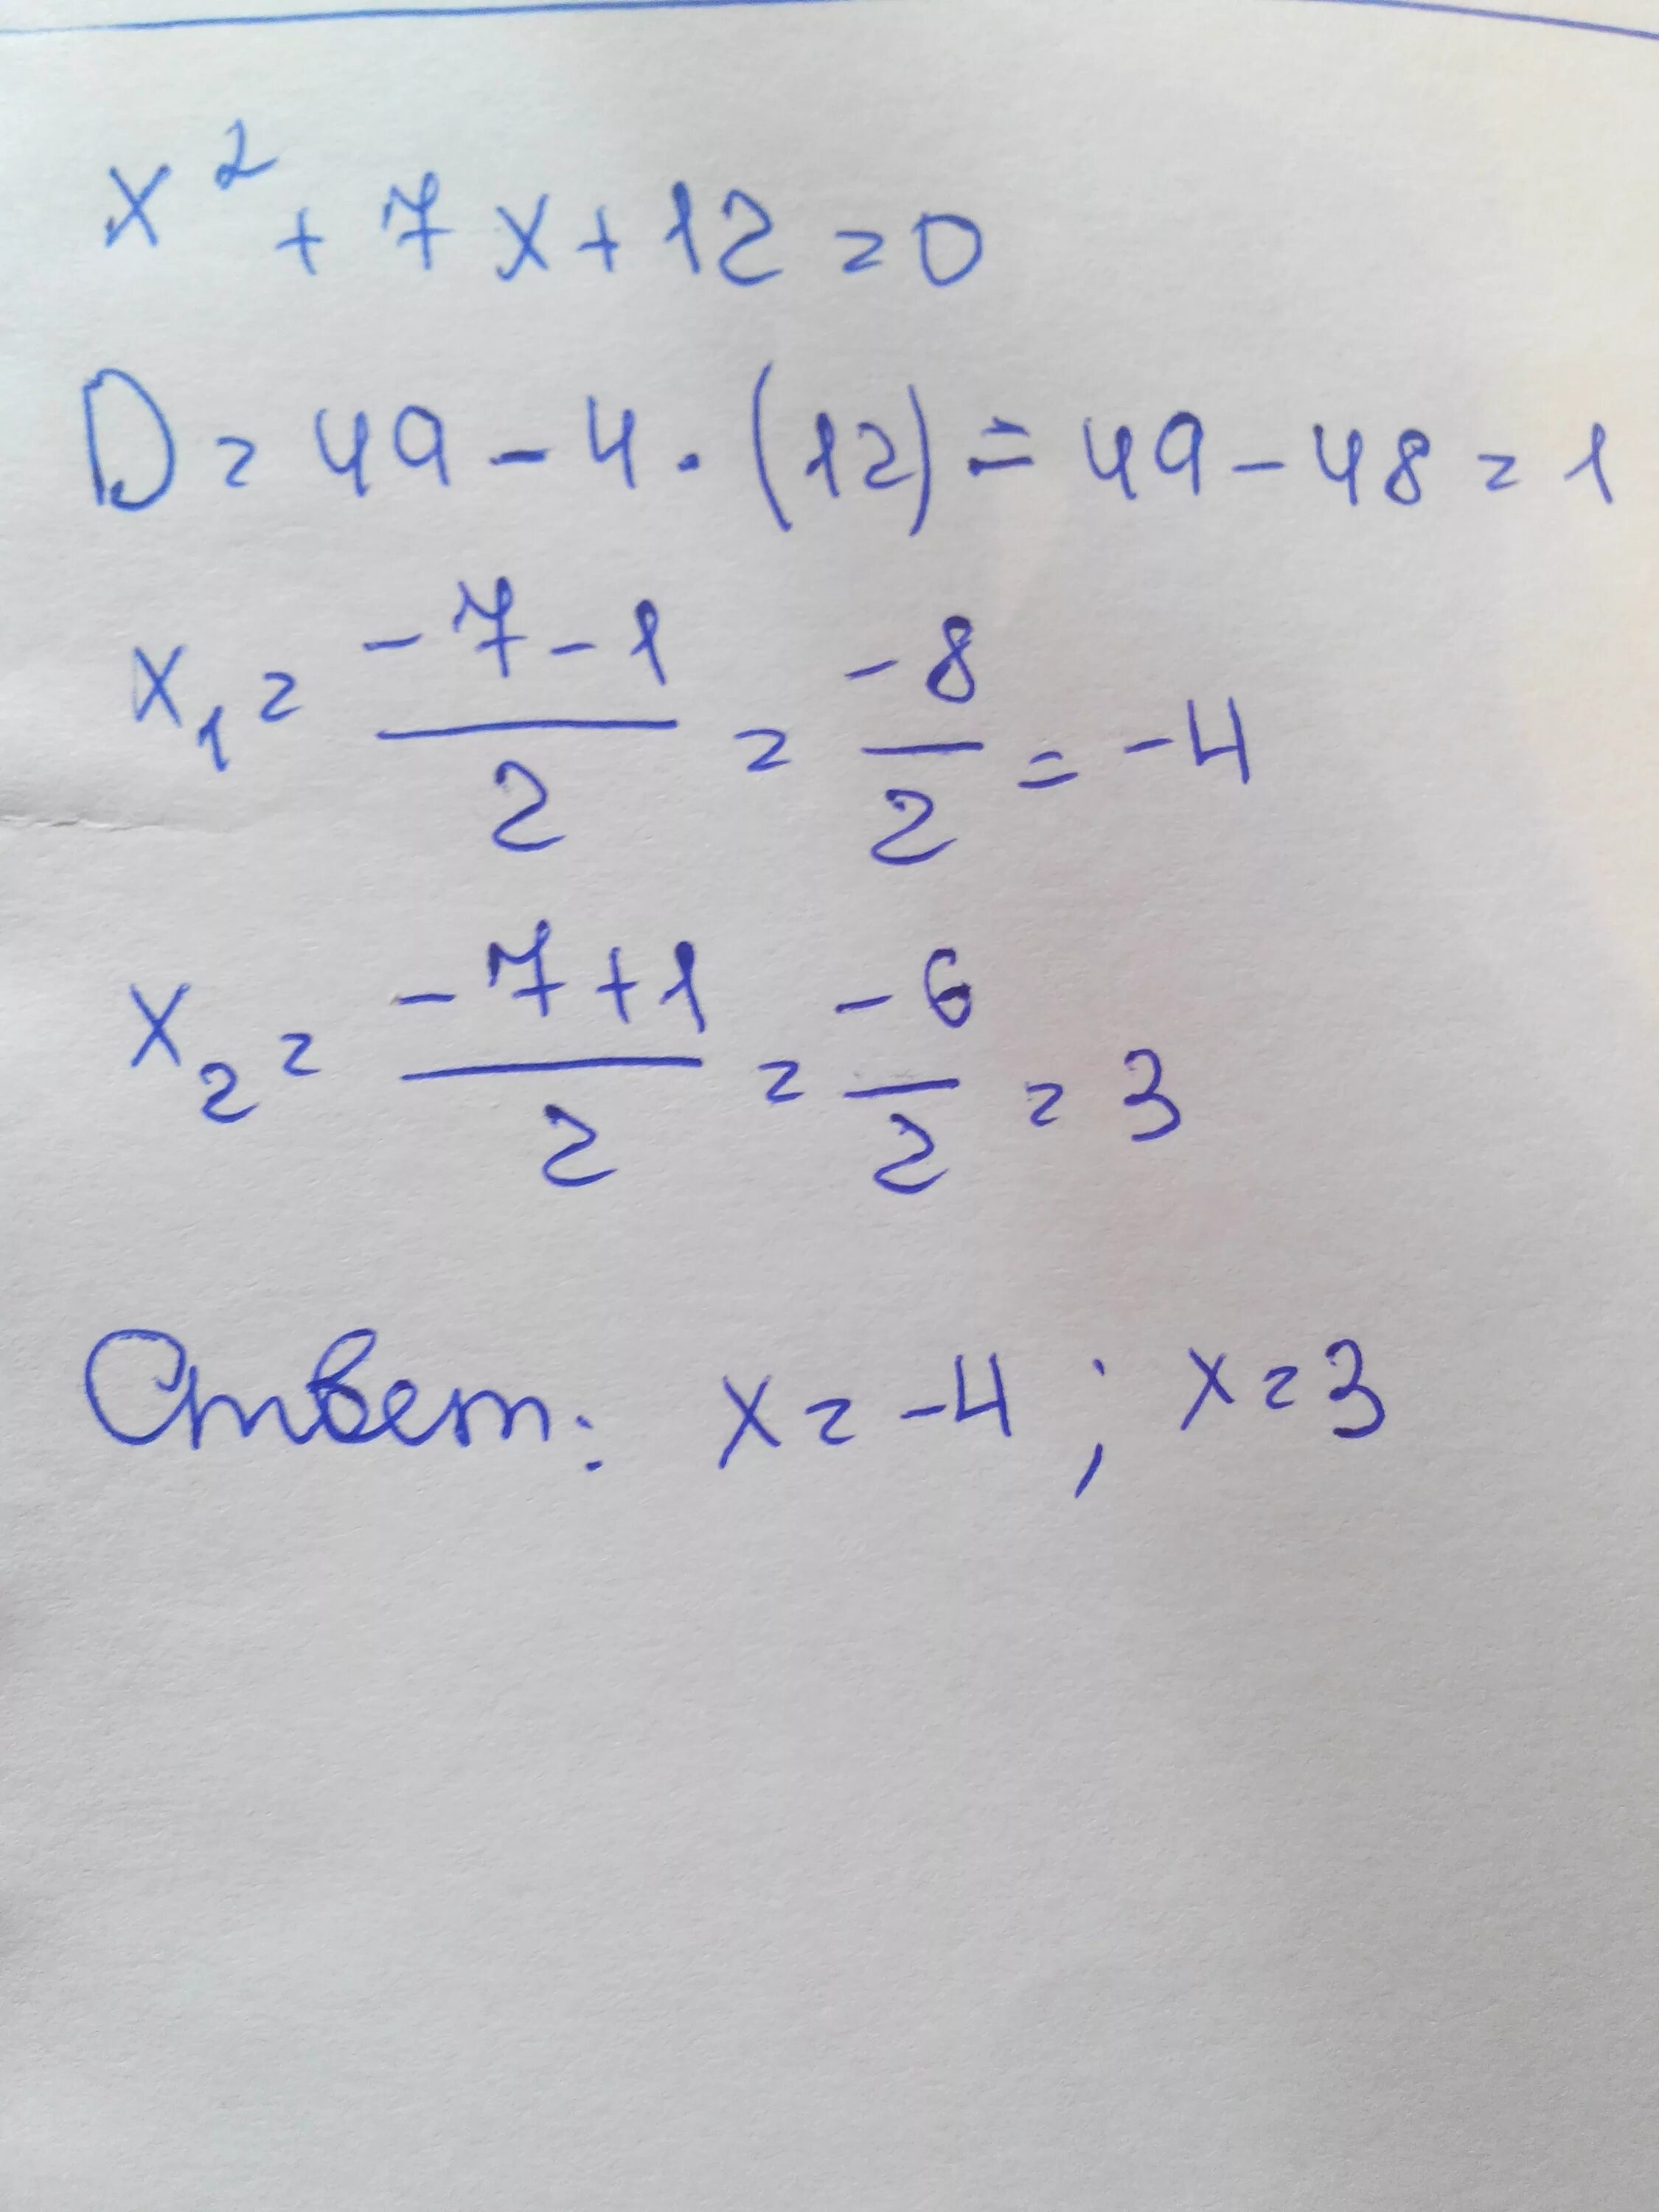 x² + 7x + 12 = 0
D = 49 - 4 · (12) = 49 - 48 = 1
x₁ = (-7 - 1)/2 = -8/2 = -4
x₂ = (-7 + 1)/2 = -6/2 = 3
Ответ: x = -4 ; x = 3